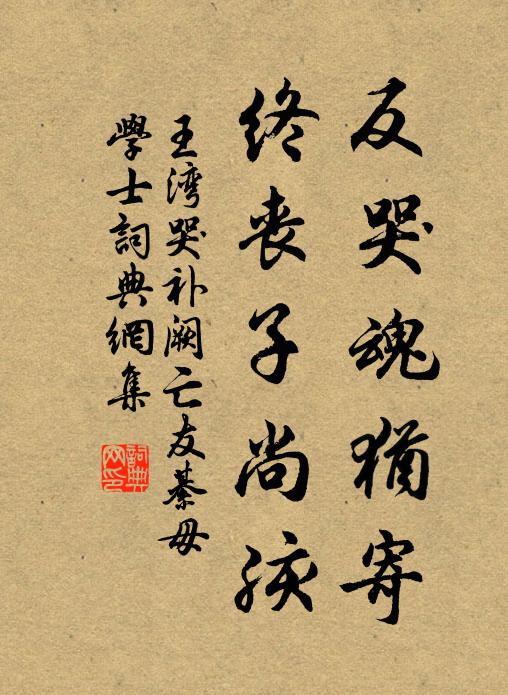 反哭魂猶寄
終丧子尚孩
王湾哭补阙亡友綦毋
學士詞典網集
詞典网印